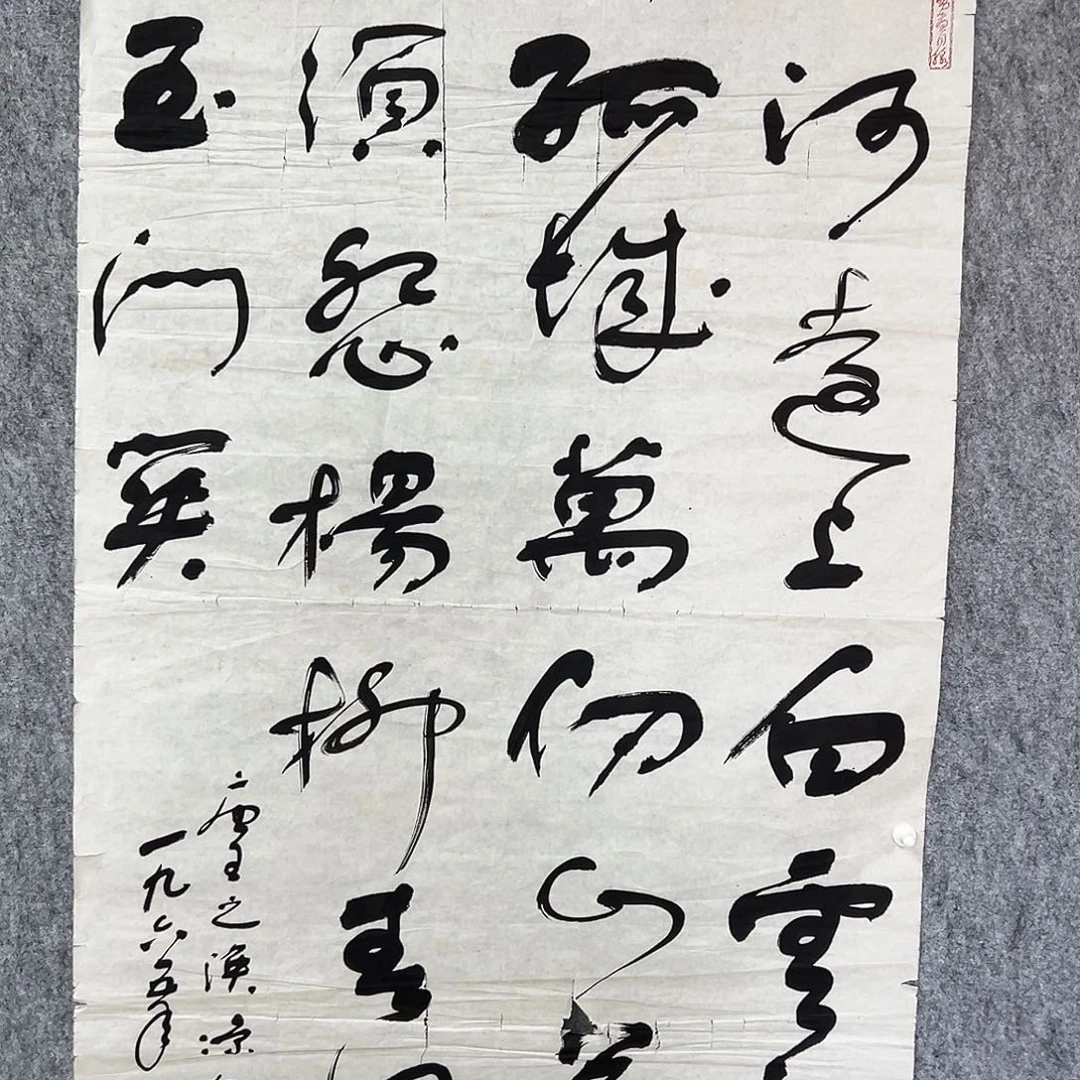 河遠上白雲
孤城萬仞山
須怨楊柳春
玉門關
唐王之渙涼
一九六五年